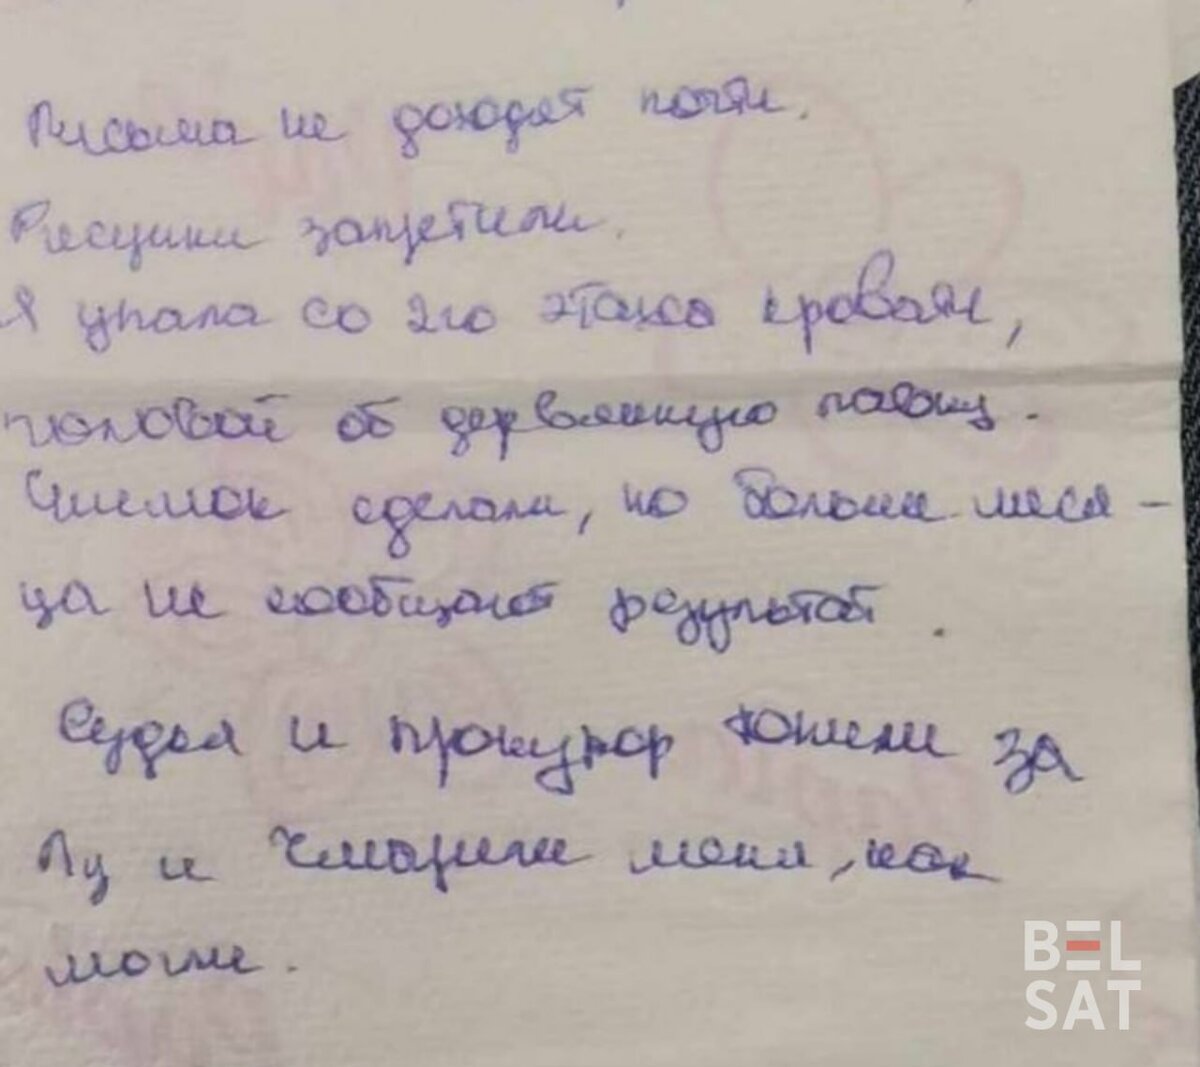 Письма не доходят почти.
Рисунки запретили.
Я упала со 2го этажа кровати,
головой об деревянную лавочку.
Снимок сделали, но больше меся-
ца не сообщают результат.
Судья и прокурор топили за
и чмарили меня, как
могли.
BELSAT